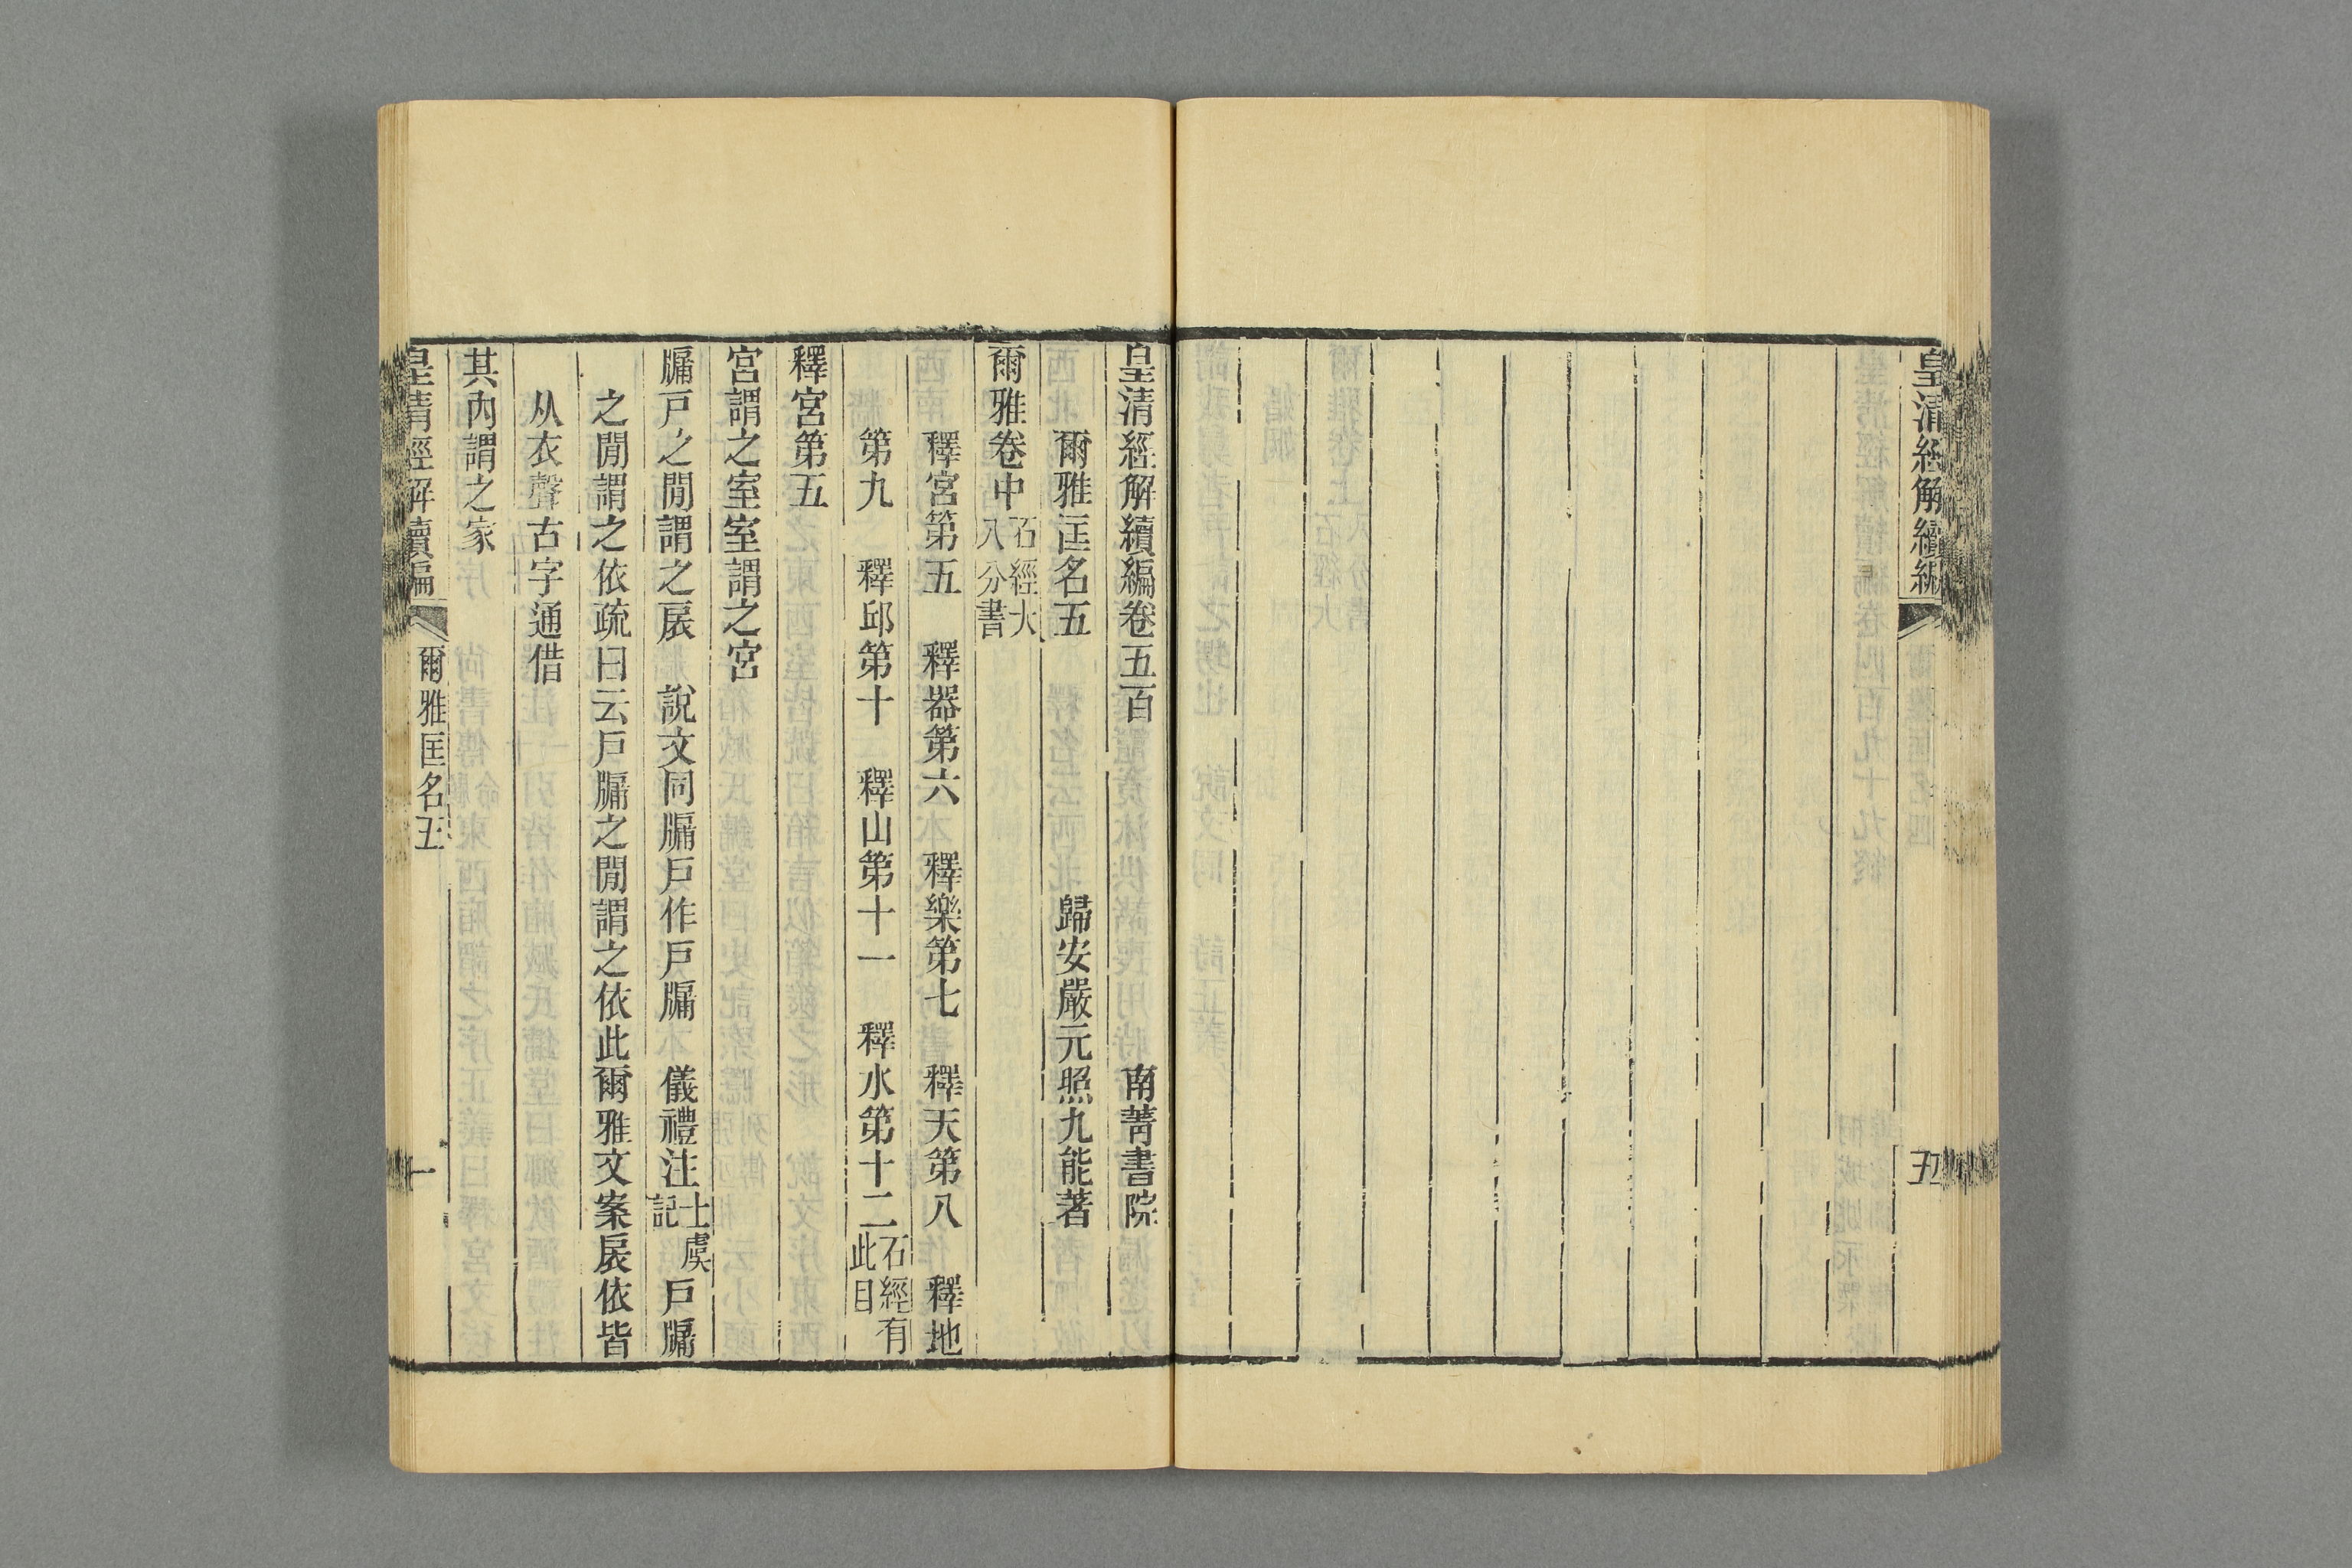 皇清經解續編
五
皇清經解續編卷五百 南菁書院
爾雅匡名五 歸安嚴元照九能著
爾雅卷中 石經大八分書
釋宮第五 釋器第六 釋樂第七 釋天第八 釋地
第九 釋邱第十 釋山第十一 釋水第十二 石經有此目
釋宮第五
宮謂之室室謂之宮
牖戸之閒謂之扆 說文同牖戸作戸牖 儀禮注 士虞記 戸牖
之閒謂之依疏曰云戸牖之閒謂之依此爾雅文案扆依皆
从衣聲古字通借
其內謂之家
皇清經解續編 爾雅匡名五 一